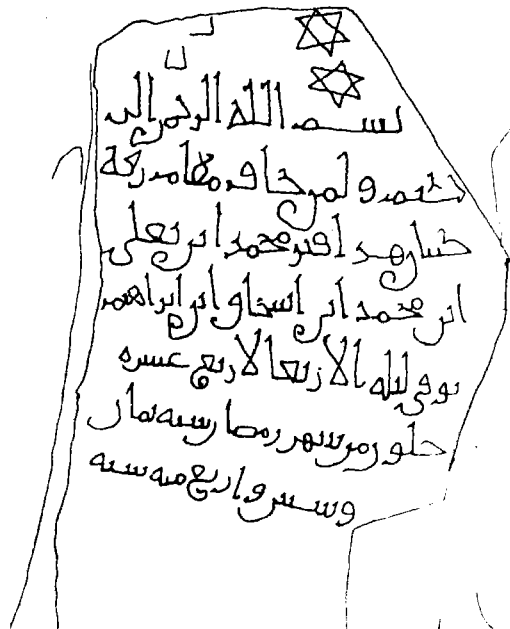 بسم الله الرحمن الر
حيم ولمن خاف مقام ربه
جنتان هذا قبر محمد ابن يعلى
ابن محمد ابن اسحاق ابن ابراهيم
توفي ليله الاربعا لاربع عشره
خلون من شهر رمضان سنه ثمان
وستين واربع مئه سنه